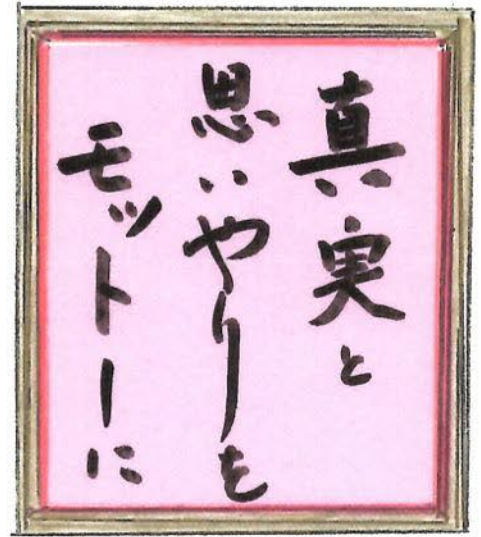 真実と
思いやりを
モットーに